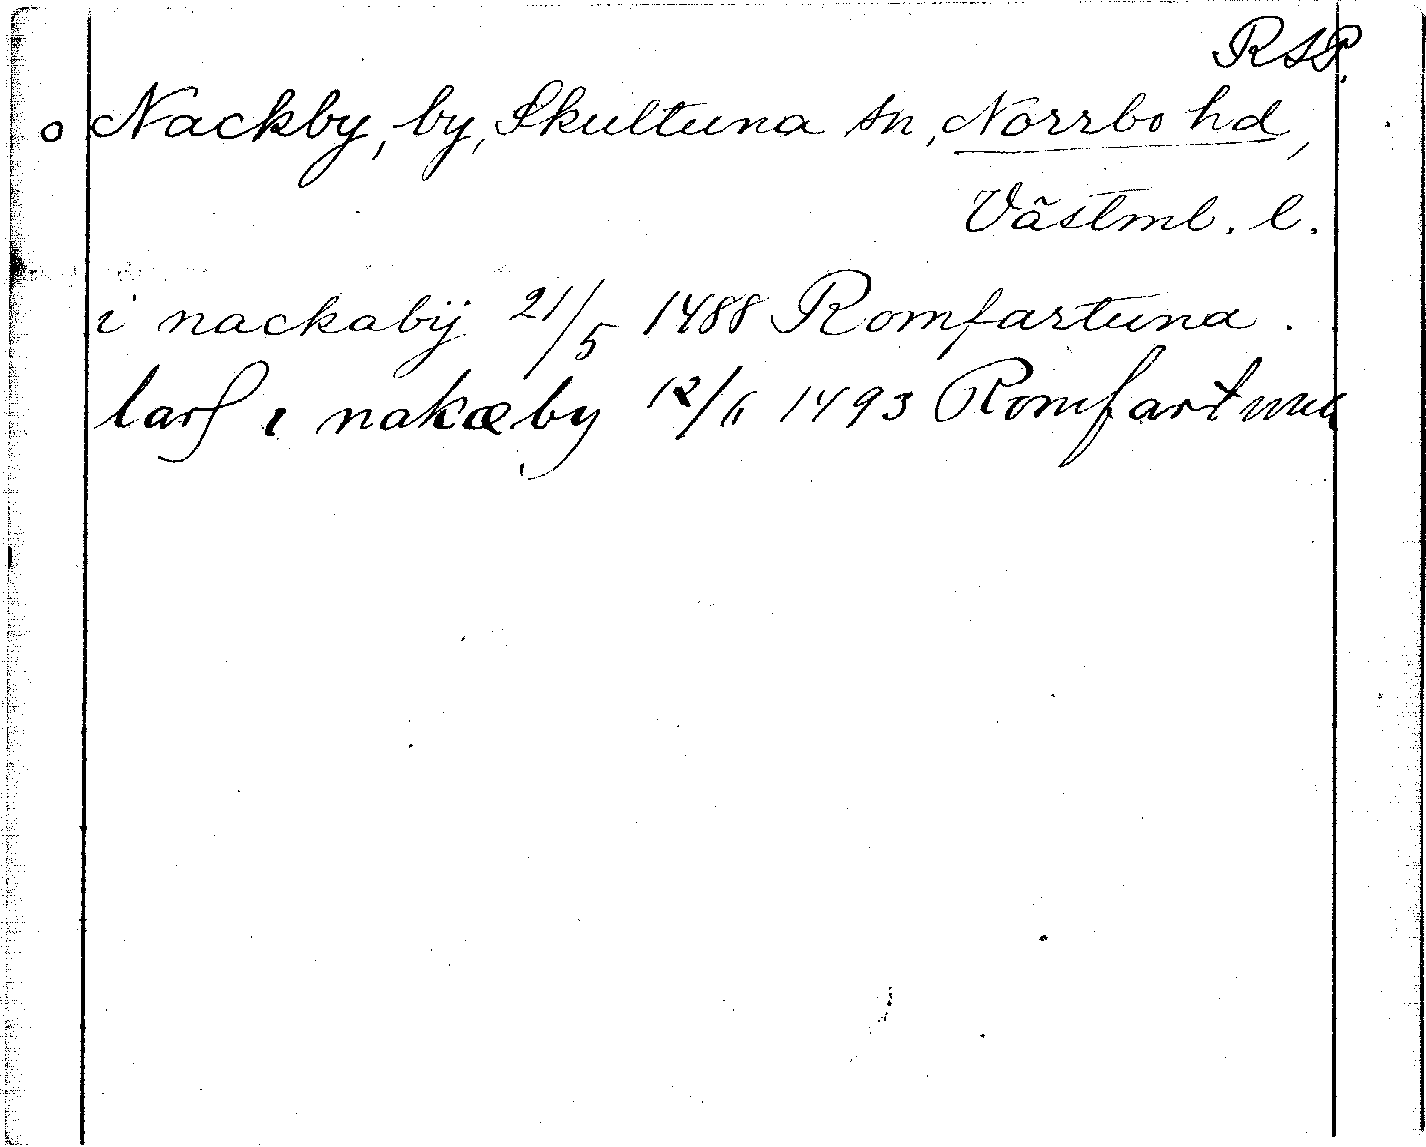 RSP.
o Nackby, by, Skultuna sn, Norrbo hd,
Västml. l.
i nackabÿ 21/5 1488 Romfartuna.
larſ i nakæby 12/11 1493 Romfartuna